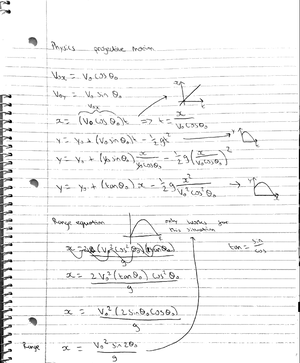 Physics projectile motion
V₀ₓ = V₀ cos θ₀
V₀y = V₀ sin θ₀
V₀ₓ
x = (V₀ cos θ₀)t => t = x / V₀ cos θ₀
y = y₀ + (V₀ sin θ₀)t - ½gt²
y = y₀ + (V₀ sin θ₀) x / V₀ cos θ₀ - ½g (x / V₀ cos θ₀)²
y = y₀ + (tan θ₀) x - ½g x² / V₀² cos² θ₀
Range equation
only works for
this situation
tan = sin / cos
x = 2V₀² (tan θ₀) cos² θ₀ / g
x = V₀² (2 sin θ₀ cos θ₀) / g
Range x = V₀² sin 2θ₀ / g